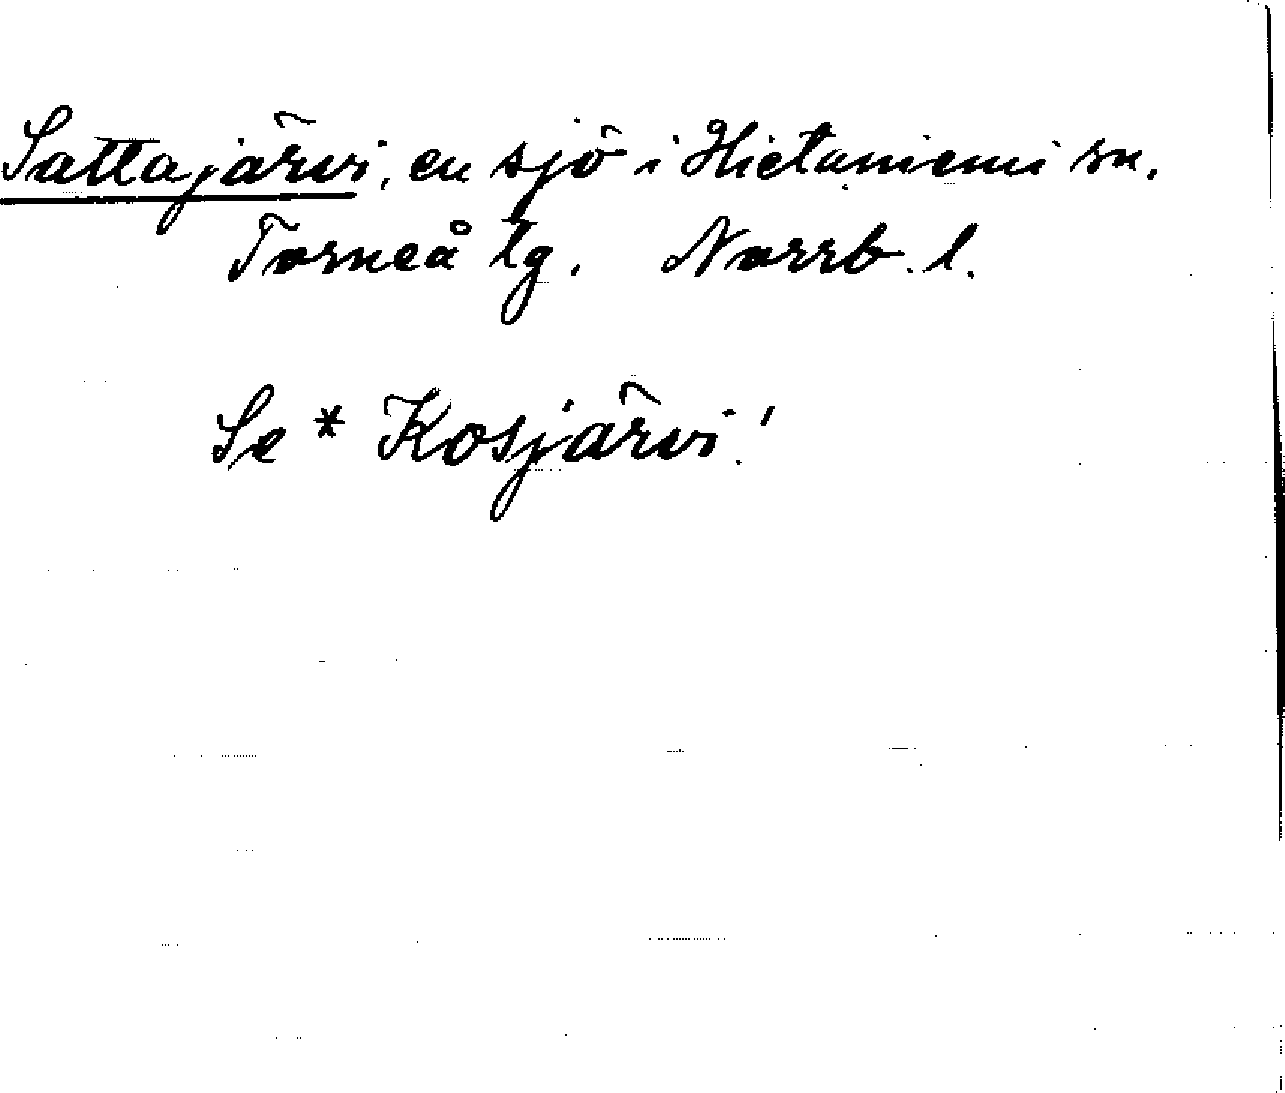 Sattajärvi, en sjö i Hietaniemi sn.
Torneå tg. Norrb. l.
Se * Kosjärvi!